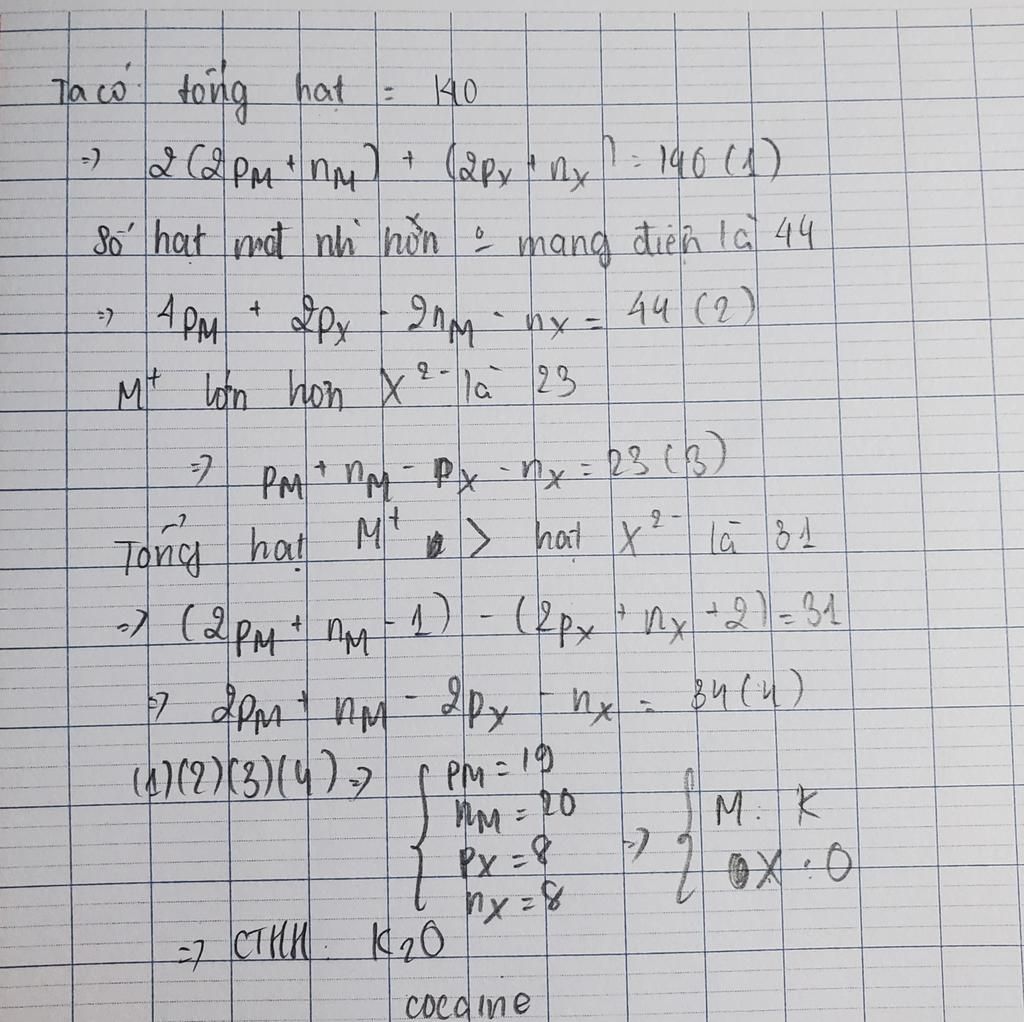 Ta có tổng hạt = 140
=> 2(2pM + nM) + (2pX + nX) = 140 (1)
Số hạt mđ nhỉ hơn o mang điện là 44
=> 4pM + 2pX - 2nM - nX = 44 (2)
M+ lớn hơn X2- là 23
=> pM + nM - pX - nX = 23 (3)
Tổng hạt M+ > hạt X2- là 31
=> (2pM + nM - 1) - (2pX + nX + 2) = 31
=> 2pM + nM - 2pX - nX = 34 (4)
(1)(2)(3)(4) => { pM = 19
nM = 20
pX = 8
nX = 8
=> { M: K
X: O
=> CTHH: K2O
cocaine